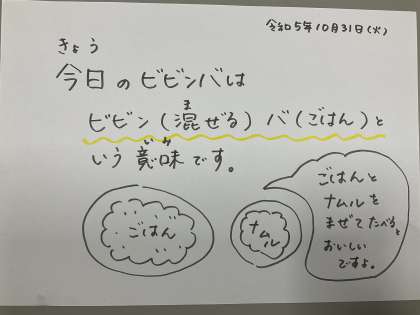 令和5年10月31日(火)
きょう
今日のビビンバは
ま
ビビン(混ぜる)バ(ごはん)と
いみ
いう意味です。
ごはん
ナムル
ごはんと
ナムルを
まぜてたべると
おいしい
ですよ。